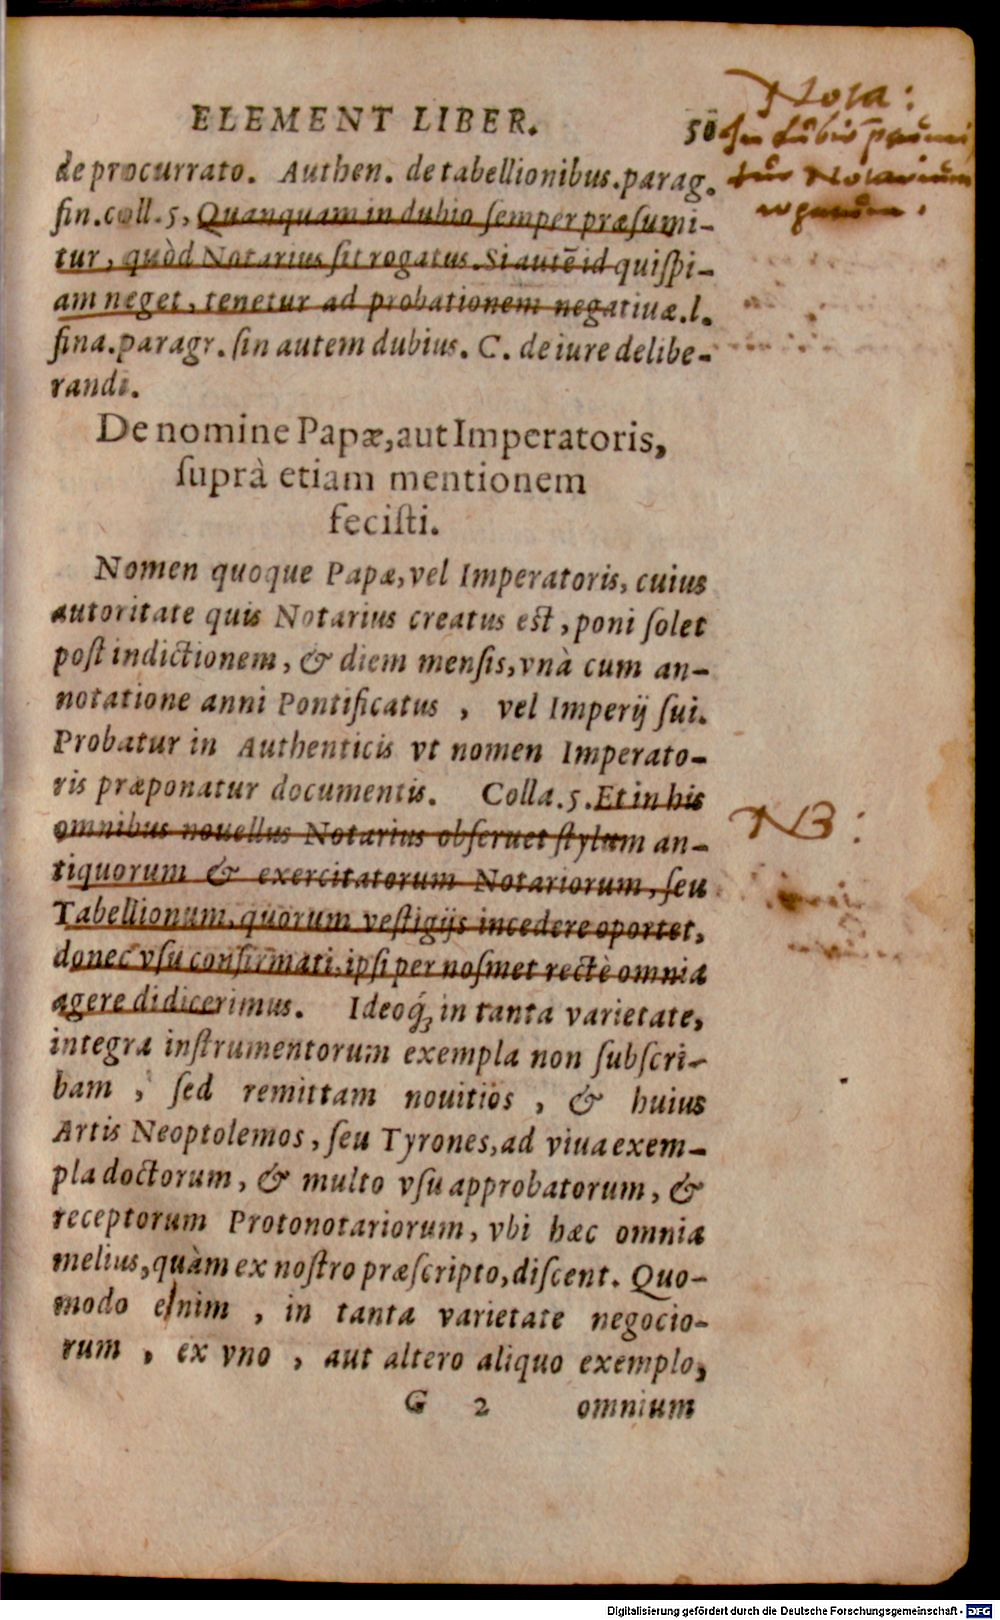 ELEMENT LIBER. 50
Nota:
In dubiis
tur Notarium
de procurrato. Authen. de tabellionibus. parag.
fin. coll. 5, Quanquam in dubio ſemper præſumi-
tur, quòd Notarius ſit rogatus. Si autẽ id quiſpi-
am neget, tenetur ad probationem negatiuæ. l.
fina. paragr. ſin autem dubius. C. de iure delibe-
randi.
De nomine Papæ, aut Imperatoris,
ſuprà etiam mentionem
feciſti.
Nomen quoque Papæ, vel Imperatoris, cuius
autoritate quis Notarius creatus eſt, poni ſolet
poſt indictionem, & diem menſis, vnà cum an-
notatione anni Pontificatus, vel Imperij ſui.
Probatur in Authenticis vt nomen Imperato-
ris præponatur documentis. Colla. 5. Et in his
omnibus nouellus Notarius obſeruet ſtylum an-
NB:
tiquorum & exercitatorum Notariorum, ſeu
Tabellionum, quorum veſtigijs incedere oportet,
donec vſu confirmati, ipſi per noſmet rectè omnia
agere didicerimus. Ideoq́; in tanta varietate,
integra inſtrumentorum exempla non ſubſcri-
bam, ſed remittam nouitios, & huius
Artis Neoptolemos, ſeu Tyrones, ad viua exem-
pla doctorum, & multo vſu approbatorum, &
receptorum Protonotariorum, vbi hæc omnia
melius, quàm ex noſtro præſcripto, diſcent. Quo-
modo enim, in tanta varietate negocio-
rum, ex vno, aut altero aliquo exemplo,
G 2 omnium
Digitalisierung gefördert durch die Deutsche Forschungsgemeinschaft - DFG